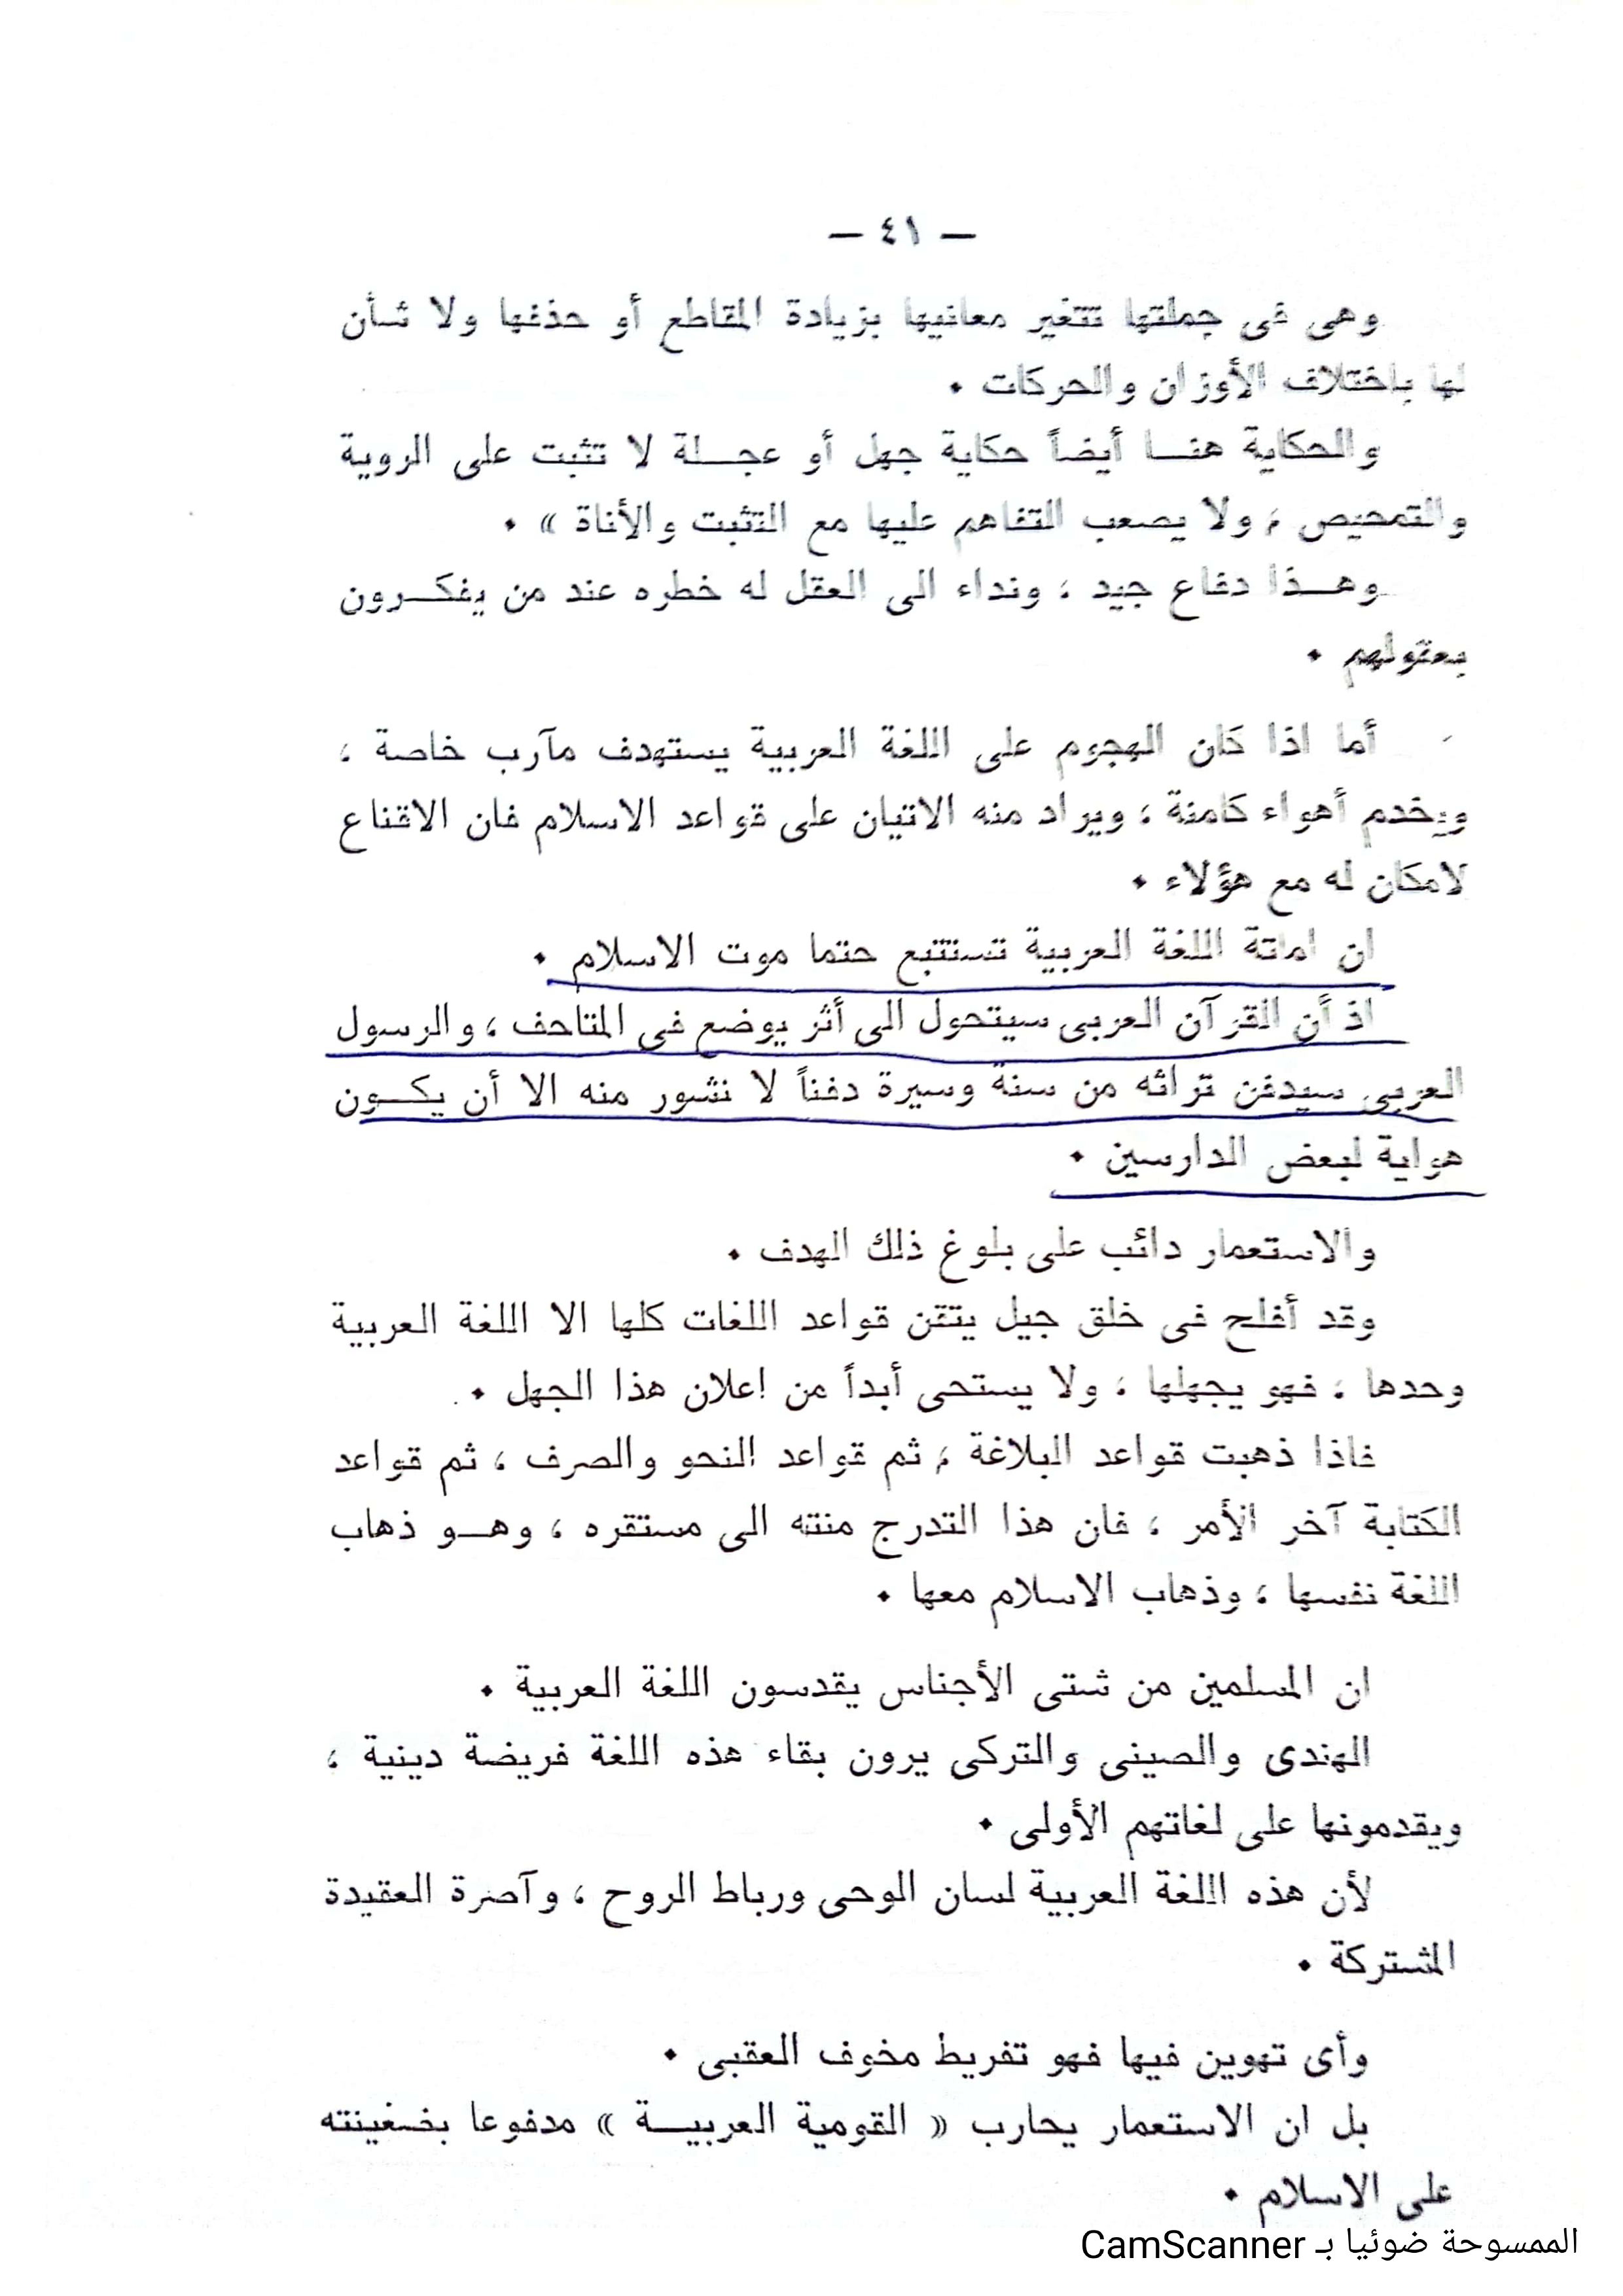 — ٤١ —
وهى فى جملتها تتغير معانيها بزيادة المقاطع أو حذفها ولا شأن
لها باختلاف الأوزان والحركات .
والحكاية هنـــا أيضاً حكاية جهل أو عجـــلة لا تثبت على الروية
والتمحيص ، ولا يصعب التفاهم عليها مع التثبت والأناة » .
وهـــذا دفاع جيد ، ونداء الى العقل له خطره عند من يفكـــرون
بعقولهم .
أما اذا كان الهجوم على اللغة العربية يستهدف مآرب خاصة ،
ويخدم أهواء كامنة ، ويراد منه الاتيان على قواعد الاسلام فان الاقناع
لامكان له مع هؤلاء .
ان اماتة اللغة العربية تستتبع حتما موت الاسلام .
اذ أن القرآن العربى سيتحول الى أثر يوضع فى المتاحف ، والرسول
العربى سيدفن تراثه من سنة وسيرة دفناً لا نشور منه الا أن يكـــون
هواية لبعض الدارسين .
والاستعمار دائب على بلوغ ذلك الهدف .
وقد أفلح فى خلق جيل يتقن قواعد اللغات كلها الا اللغة العربية
وحدها ، فهو يجهلها ، ولا يستحى أبداً من اعلان هذا الجهل .
فاذا ذهبت قواعد البلاغة ، ثم قواعد النحو والصرف ، ثم قواعد
الكتابة آخر الأمر ، فان هذا التدرج منته الى مستقره ، وهـــو ذهاب
اللغة نفسها ، وذهاب الاسلام معها .
ان المسلمين من شتى الأجناس يقدسون اللغة العربية .
الهندى والصينى والتركى يرون بقاء هذه اللغة فريضة دينية ،
ويقدمونها على لغاتهم الأولى .
لأن هذه اللغة العربية لسان الوحى ورباط الروح ، وآصرة العقيدة
المشتركة .
وأى تهوين فيها فهو تفريط مخوف العقبى .
بل ان الاستعمار يحارب « القومية العربيـــة » مدفوعا بضغينته
على الاسلام .
الممسوحة ضوئيا بـ CamScanner